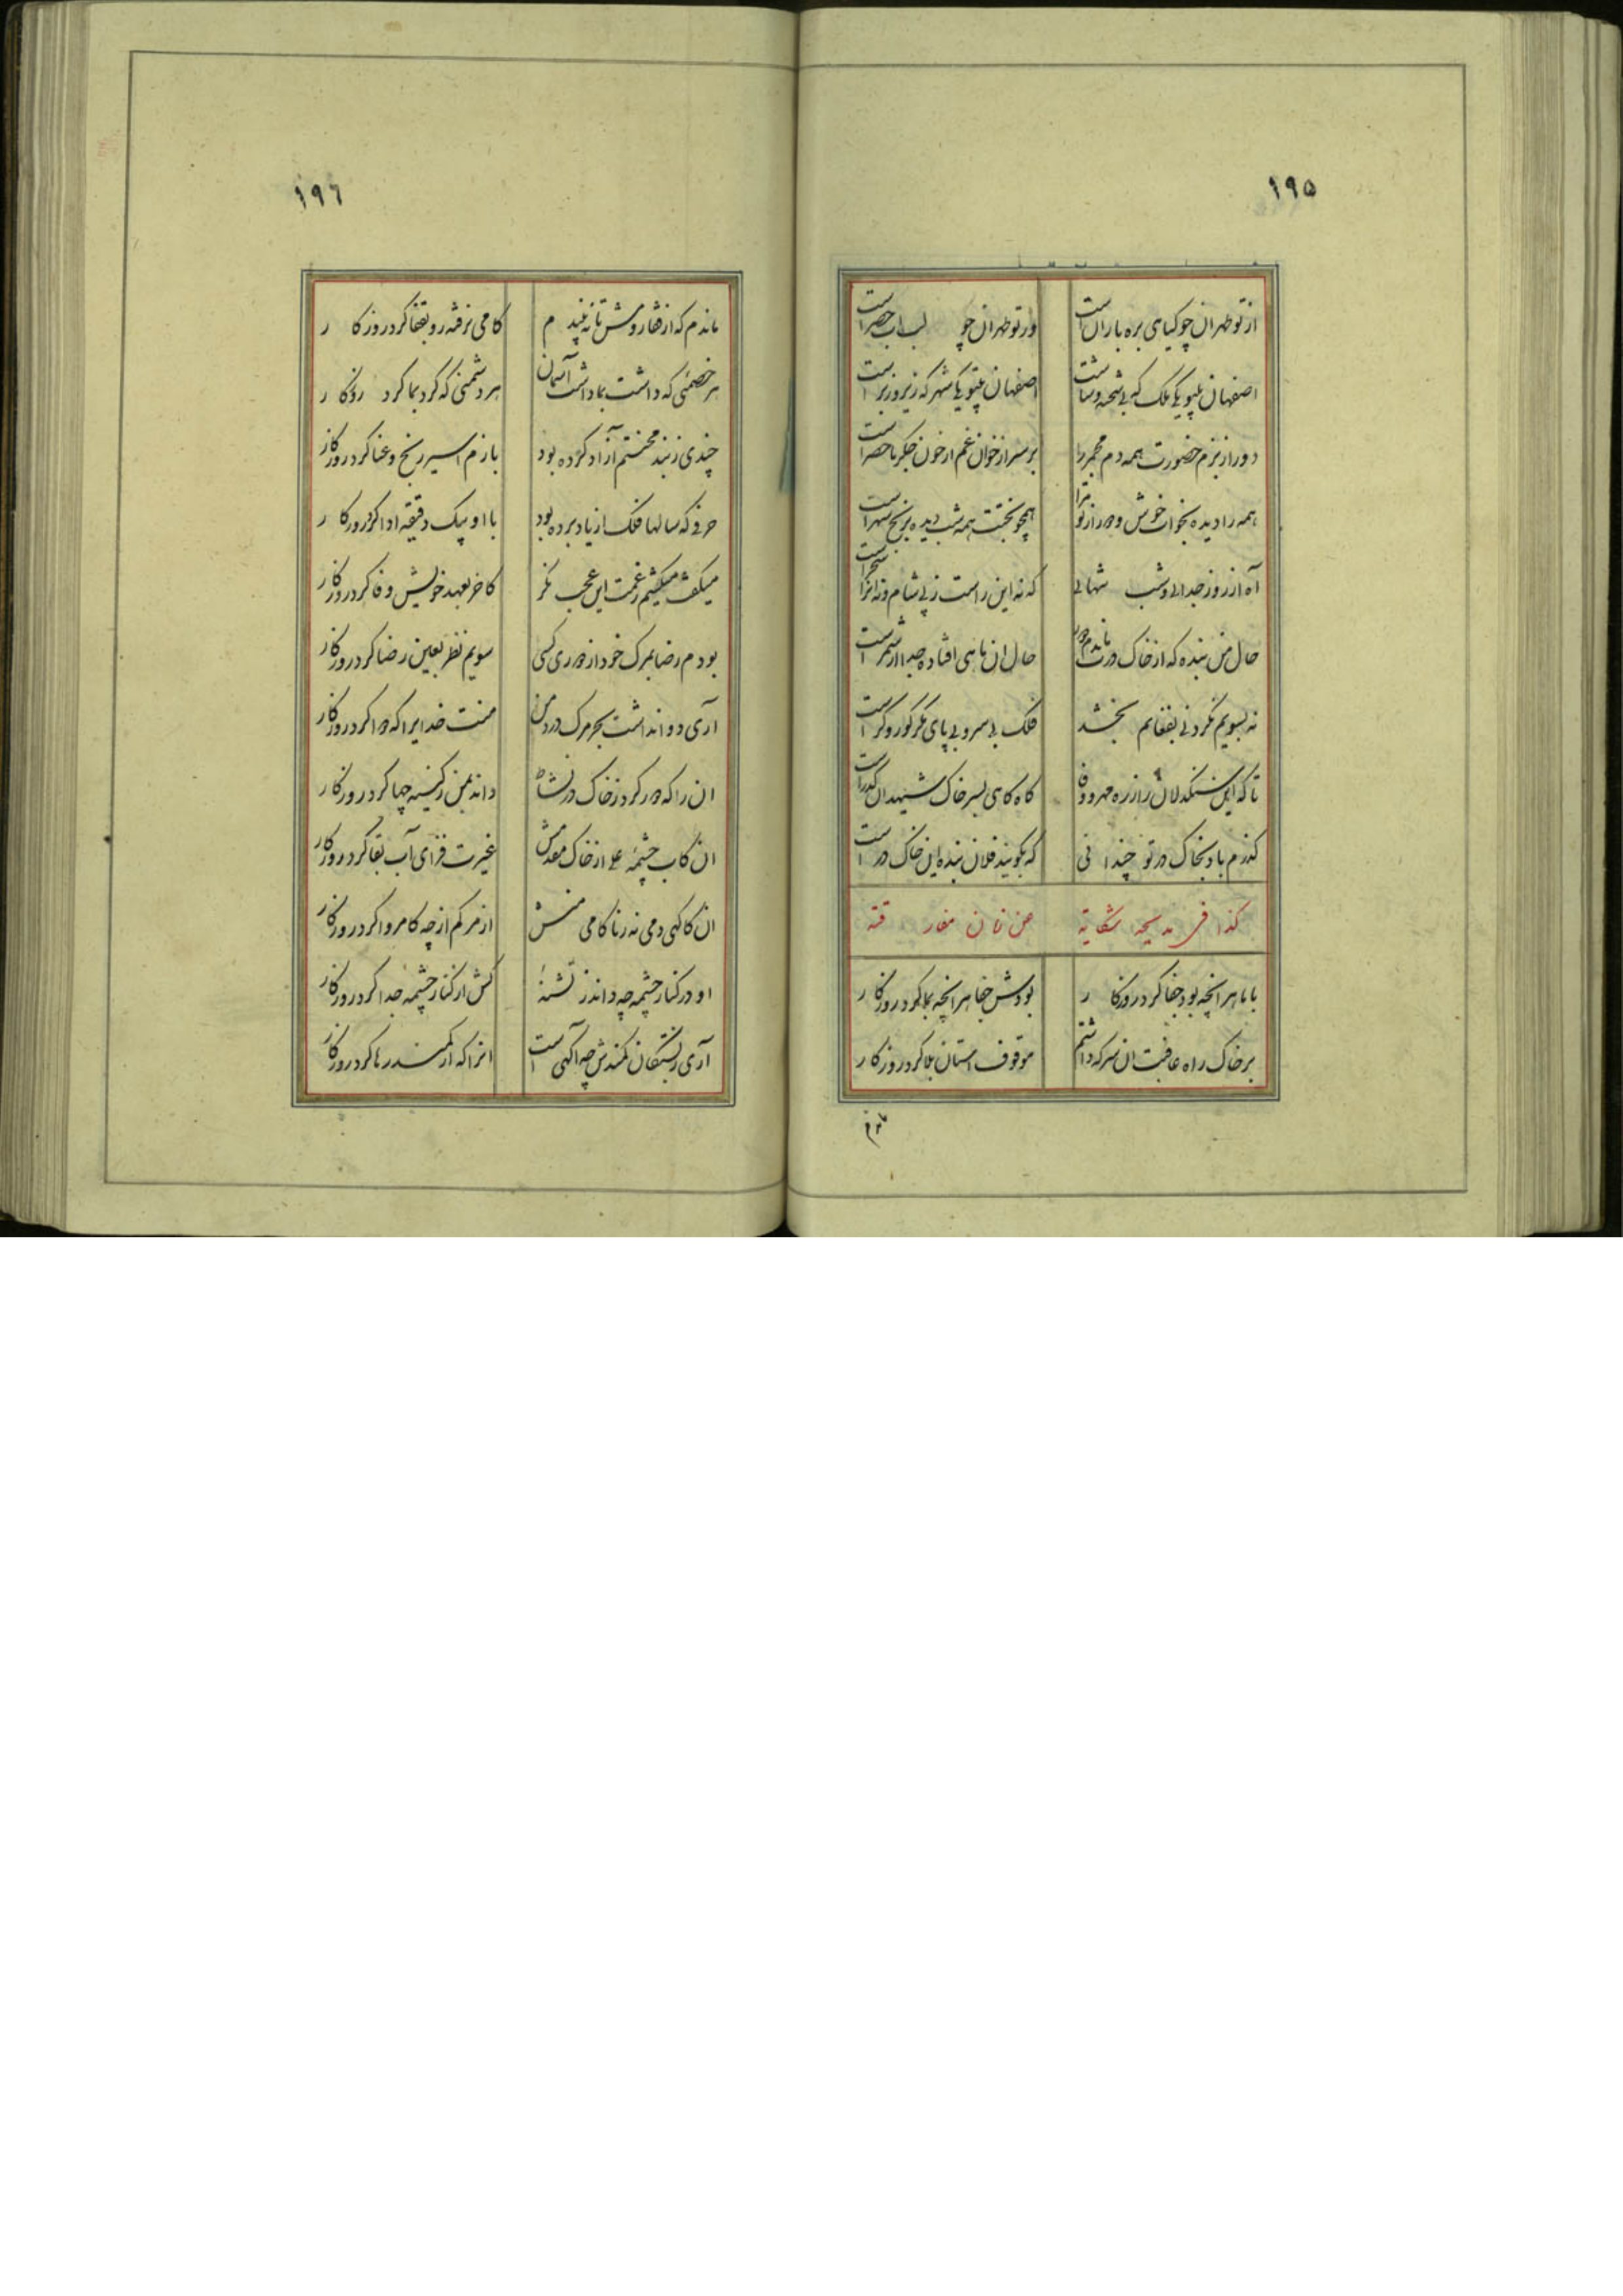 ۱۹۵
از تو طهران چو کیاهی بره باران است
ور تو طهران چو لب اب خضر است
اصفهان بیتو یکی ملک که بی شحنه و شاست
اصفهان بیتو یکی شهر که زیر و زبر است
دور از بزم حضورت همه دم مجمر را
بر سر از خوان غم از خون جکر ماحضر است
همه را دیده بخواب خوش و دور از تو مرا
همچو بختت همه شب دیده برنج سهر است
آه از روز جدایی و شب تنهایی
که نه این راست ز پی شام و نه انرا سحر است
حال من بنده که از خاک درت ماندم دور
حال ان ماهی افتاده جدا از شمر است
نه بسویم نکرد نی بفغانم بخشد
فلک بی سر و بی پای مکر کور و کر است
تا که این سنکدلان را ز ره مهر و وفا
کاه کاهی بسر خاک شهیدان کذر است
کذرم باد بخاک در تو چندانی
که بکویند فلان بنده این خاک در است
کذا فی مدیحه شکایة من زمان مفارقته
با ما هر انچه بود جفا کرد روزکار
بودش جفا هر انچه بما کرد روزکار
بر خاک راه عافیت ان سر که داشتم
موقوف استان بلا کرد روزکار
ماندم
۱۹٦
ماندم که از قفا روش تا نه بیندم
کامی نرفته رو بقفا کرد روزکار
هر خصمئی که داشت بما داشت آسمان
هر دشمنی که کرد بما کرد روزکار
چندی ز بند محنتم آزاد کرده بود
بازم اسیر رنج و عنا کرد روزکار
حرفی که سالها فلک از یاد برده بود
با او بیک دقیقه ادا کرد روزکار
میکفت میکشیم ز غمت این عجب نکر
کاخر بعهد خویش وفا کرد روزکار
بودم رضا بمرک خود از دوری کسی
سویم نظر بعین رضا کرد روزکار
آری دوا نداشت بجز مرک درد من
منت خدایرا که دوا کرد روزکار
ان را که دور کرد ز خاک در
داند بمن ز کینه چها کرد روزکار
ان کاب چشمهٔ از خاک مقدمش
غیرت فزای آب بقا کرد روزکار
ان کاکهی دمی نه ز ناکامی منش
از مرکم از چه کام روا کرد روزکار
او در کنار چشمه چه داند ز تشنهٔ
کش از کنار چشمه جدا کرد روزکار
آری ز بستکان کمندش چه آکهی است
انرا که از کمند رها کرد روزکار